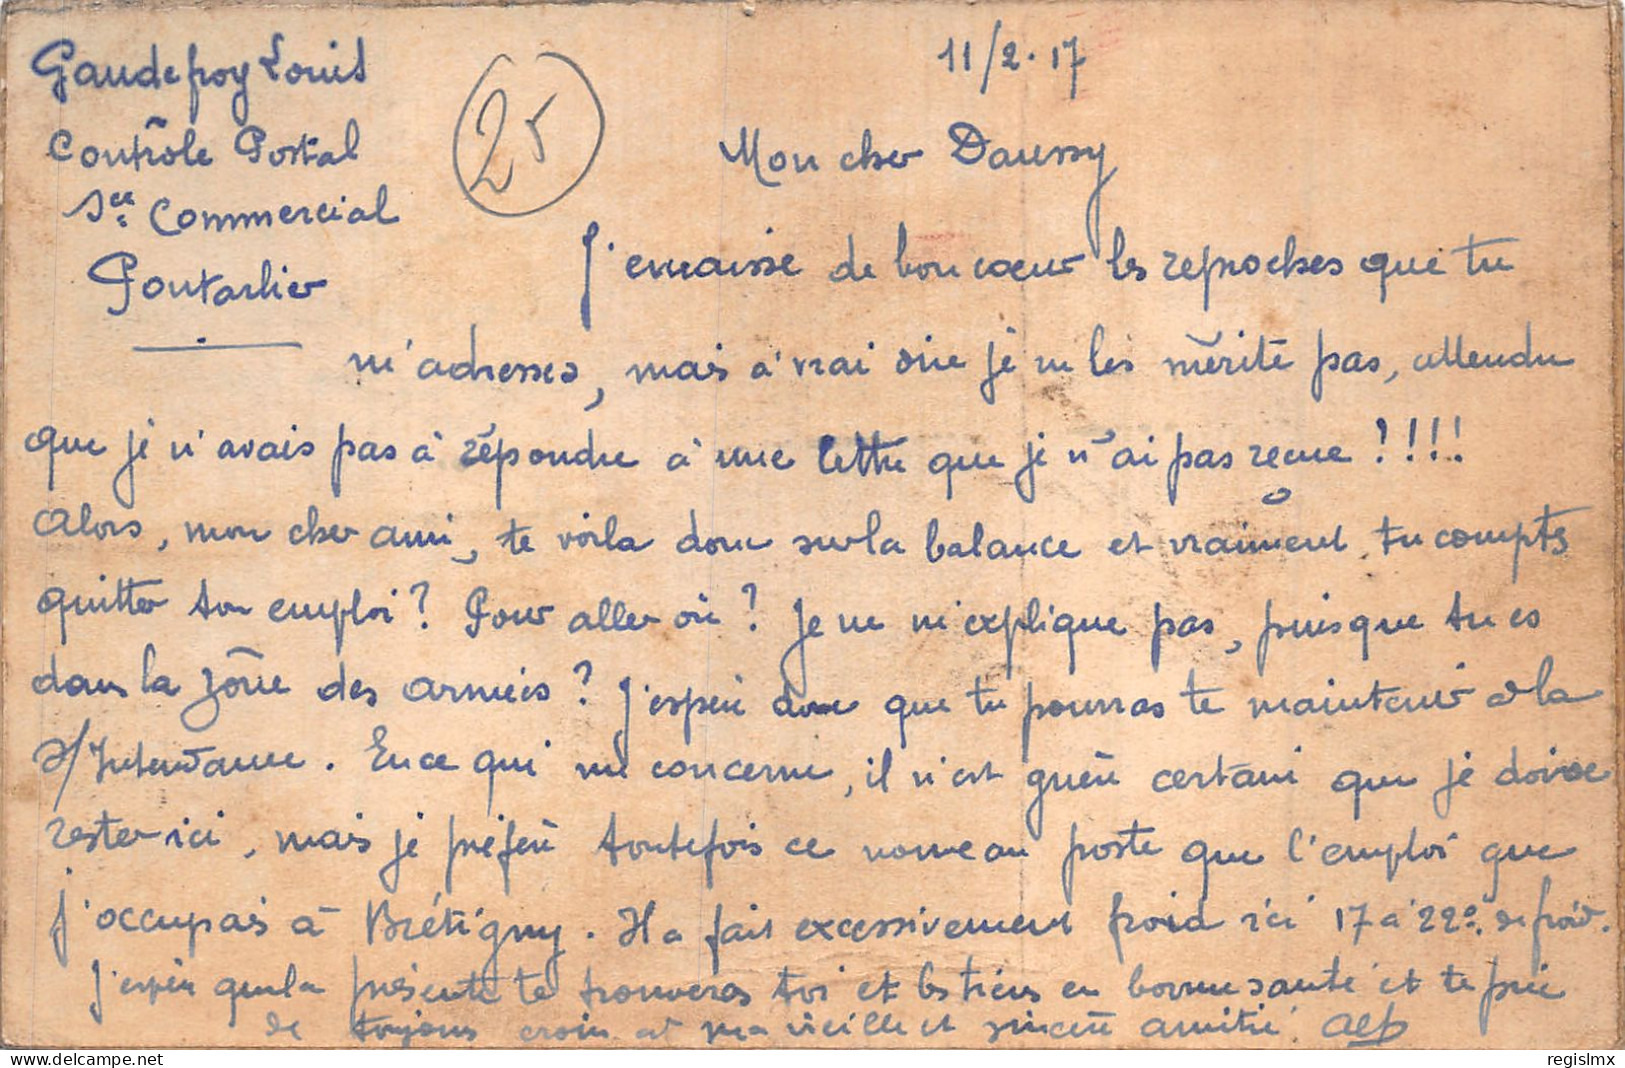 Gaudefroy Louis
Contrôle Postal
Son Commercial
Pontarlier
25
11/2.17
Mon cher Daussy
J'encaisse de bon coeur les reproches que tu
m'adresses, mais à vrai dire je ne les mérite pas, attendu
que je n'avais pas à répondre à une lettre que je n'ai pas recue !!!!
Alors, mon cher ami, te voila donc sur la balance et vraiment tu comptes
quitter ton emploi ? Pour aller où ? Je ne m'explique pas, puisque tu es
dans la zône des armées ? J'espère donc que tu pourras te maintenir à la
s/Intendance. En ce qui me concerne, il n'est guère certain que je doive
rester ici, mais je préfère toutefois ce nouveau poste que l'emploi que
j'occupais à Brétigny. Il a fait excessivement froid ici 17 à 22° de froid.
J'espère que la présente te trouveras toi et les tiens en bonne santé et te prie
de toujours croire à ma vieille et sincère amitié.
regislmx